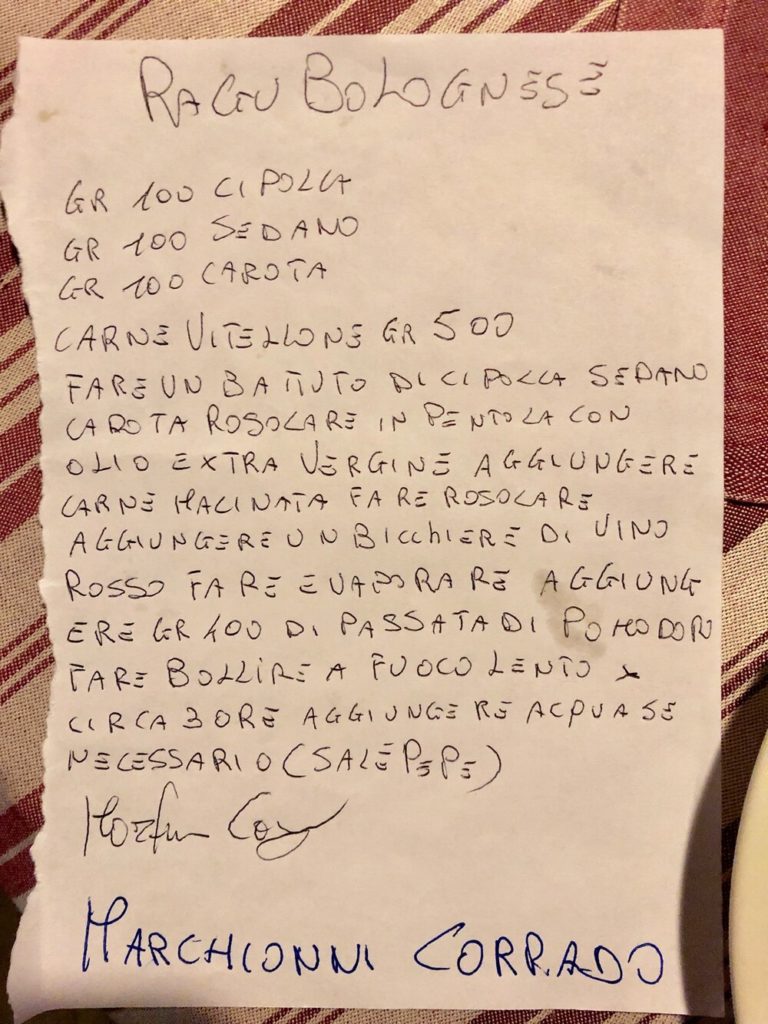 RAGU BOLOGNESE
GR 100 CIPOLLA
GR 100 SEDANO
GR 100 CAROTA
CARNE VITELLONE GR 500
FARE UN BATTUTO DI CIPOLLA SEDANO
CAROTA ROSOLARE IN PENTOLA CON
OLIO EXTRA VERGINE AGGIUNGERE
CARNE MACINATA FARE ROSOLARE
AGGIUNGERE UN BICCHIERE DI VINO
ROSSO FARE EVAPORARE AGGIUNG
ERE GR 400 DI PASSATA DI POMODORO
FARE BOLLIRE A FUOCO LENTO x
CIRCA 3 ORE AGGIUNGERE ACQUA SE
NECESSARIO (SALE PEPE)
MARCHIONNI CORRADO